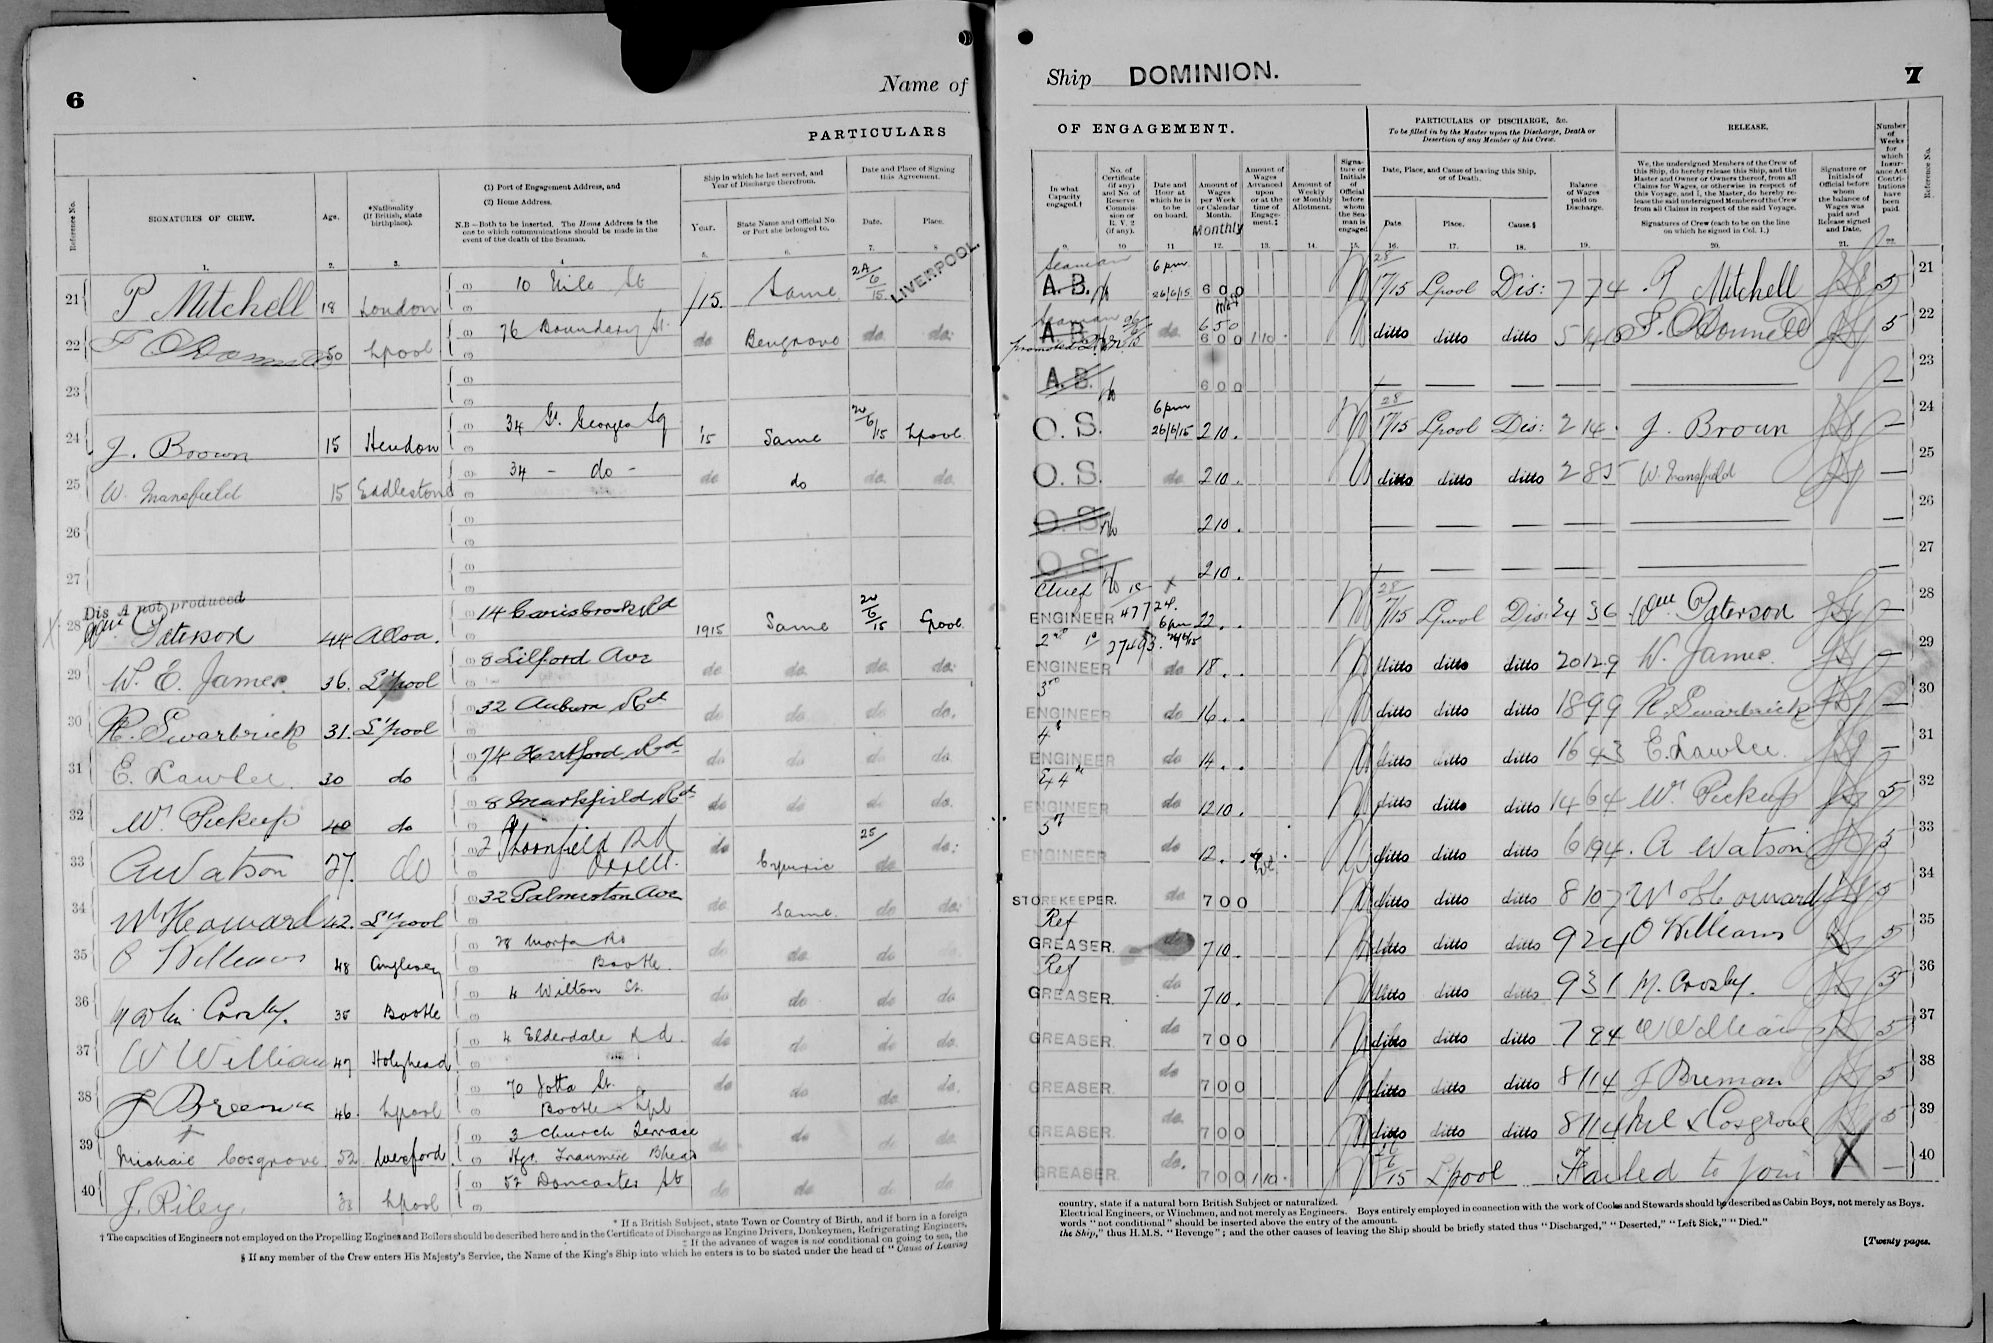 6
Name of
PARTICULARS
Reference No.
SIGNATURES OF CREW.
Age.
*Nationality
(If British, state
birthplace).
(1) Port of Engagement Address, and
(2) Home Address.
N.B—Both to be inserted. The Home Address is the
one to which communications should be made in the
event of the death of the Seaman.
Ship in which he last served, and
Year of Discharge therefrom.
Year.
State Name and Official No.
or Port she belonged to.
Date and Place of Signing
this Agreement.
Date.
Place.
1. 2. 3. 4 5. 6. 7. 8
21 P Mitchell 18 London (1) 10 Nile St /15. Same 24/6/15 LIVERPOOL.
22 F O'Donnell 50 Lpool (1) 76 Boundary St. do Bengrove do. do.
23
24 J. Brown 15 Hendon 34 St. Georges Sq '15 Same 24/6/15 Lpool
25 W. Mansfield 15 Eddleston 34 - do - do do do. do.
26
27
Dis A not produced
28 Wm Paterson 44 Alloa. 14 Carisbrook Rd 1915 Same 24/6/15 Lpool
29 W. E. James. 36. L'pool 8 Lilford Ave do do. do. do.
30 R. Swarbrick 31. L'pool 32 Auburn Rd do do. do do.
31 E. Lawler. 30 do 74 Hertford Rd do do. do do.
32 Wm Pickup 40 do 8 Markfield Rd do do. do do.
33 A Watson 27. do 2 Thornfield Rd do Cymric 25/ do do.
Orrell.
34 Wm Howard 42. L'pool 32 Palmerston Ave do Same. do do.
35 O Williams 48 Anglesey 28 Morfa Rd do do. do
Bootle.
36 Crosby. 35 Bootle 4 Wilton St. do do do do.
37 W William 47 Holyhead 4 Elderdale Rd. do do do do.
38 J Brennan 46. Lpool 70 Jotta St. do do do do.
Bootle Lpl
39 Michael Cosgrove 52 Wexford. 3 Church Terrace do do do do.
Hgr. Tranmere Bhead
40 J. Riley. 38 Lpool 52 Doncaster St do do do do
* If a British Subject, state Town or Country of Birth, and if born in a foreign
† The capacities of Engineers not employed on the Propelling Engines and Boilers should be described here and in the Certificate of Discharge as Engine Drivers, Donkeymen, Refrigerating Engineers,
‡ If the advance of wages is not conditional on going to sea, the
§ If any member of the Crew enters His Majesty's Service, the Name of the King's Ship into which he enters is to be stated under the head of "Cause of Leaving
Ship DOMINION.
7
OF ENGAGEMENT.
PARTICULARS OF DISCHARGE, &c.
To be filled in by the Master upon the Discharge, Death or
Desertion of any Member of his Crew.
RELEASE,
In what
Capacity
engaged.†
No. of
Certificate
(if any)
and No. of
Reserve
Commis-
sion or
R. V. 2
(if any).
Date and
Hour at
which he is
to be
on board.
Amount of
Wages
per Week
or Calendar
Month.
Monthly
Amount of
Wages
Advanced
upon
or at the
time of
Engage-
ment.‡
Amount of
Weekly
or Monthly
Allotment.
Signa-
ture or
Initials
of
Official
before
whom
the Sea-
man is
engaged
Date, Place, and Cause of leaving this Ship,
or of Death.
Date
Place.
Cause.§
Balance
of Wages
paid on
Discharge.
We, the undersigned Members of the Crew of
this Ship, do hereby release this Ship, and the
Master and Owner or Owners thereof, from all
Claims for Wages, or otherwise in respect of
this Voyage, and I, the Master, do hereby re-
lease the said undersigned Members of the Crew
from all Claims in respect of the said Voyage.
Signatures of Crew (each to be on the line
on which he signed in Col. 1.)
Signature or
Initials of
Official before
whom
the balance of
Wages was
paid and
Release signed
and Date.
Number
of
Weeks
for
which
Insur-
ance Act
Contri-
butions
have
been
paid.
Reference No.
9. 10 11 12. 13. 14. 15. 16. 17. 18. 19. 20. 21. 22.
Seaman 6 pm
A.B. 26/6/15 6 0 0 28/7/15 Lpool Dis: 7 7 4 P Mitchell 5 21
Seaman 6 5 0
A.B. do. 6 0 0 1 10 ditto ditto ditto F. O'Donnell 5 22
A.B. 6 0 0 — — — — — 23
6 pm
O.S. 26/6/15 2 10. 28/7/15 Lpool Dis: 2 14 J. Brown — 24
O.S. do 2 10. ditto ditto ditto 2 8 5 W. Mansfield — 25
O.S. 2 10. — — — — — 26
O.S. 2 10. — — — — — 27
Chief
ENGINEER 47724. 6 pm 22.. 28/7/15 Lpool Dis: 24 3 6 Wm Paterson — 28
2nd 27493. 26/6/15
ENGINEER do 18.. ditto ditto ditto 20 12 9 W. James. — 29
3rd
ENGINEER do 16.. ditto ditto ditto 18 9 9 R Swarbrick — 30
4th
ENGINEER do 14.. ditto ditto ditto 16 4 3 E. Lawler — 31
ENGINEER do 12 10. ditto ditto ditto 14 6 4 Wm Pickup 5 32
5th
ENGINEER do 12.. ditto ditto ditto 6 19 4. A Watson 5 33
STOREKEEPER. do 7 0 0 ditto ditto ditto 8 10 7 Wm Howard 5 34
Ref
GREASER. do 7 10. ditto ditto ditto 9 2 4 O Williams 5 35
Ref
GREASER. do 7 10. ditto ditto ditto 9 3 1 M. Crosby. 5 36
GREASER. do 7 0 0 ditto ditto ditto 7 9 4 W William 5 37
GREASER. do 7 0 0 ditto ditto ditto 8 11 4 J Brennan 5 38
GREASER. do. 7 0 0 ditto ditto ditto 8 11 4 Ml x Cosgrove 5 39
GREASER. do. 7 0 0 1 10. Lpool Failed to join X — 40
country, state if a natural born British Subject or naturalized.
Electrical Engineers, or Winchmen, and not merely as Engineers. Boys entirely employed in connection with the work of Cooks and Stewards should be described as Cabin Boys, not merely as Boys.
words "not conditional" should be inserted above the entry of the amount.
the Ship," thus H.M.S. "Revenge"; and the other causes of leaving the Ship should be briefly stated thus "Discharged," "Deserted," "Left Sick," "Died."
[Twenty pages.